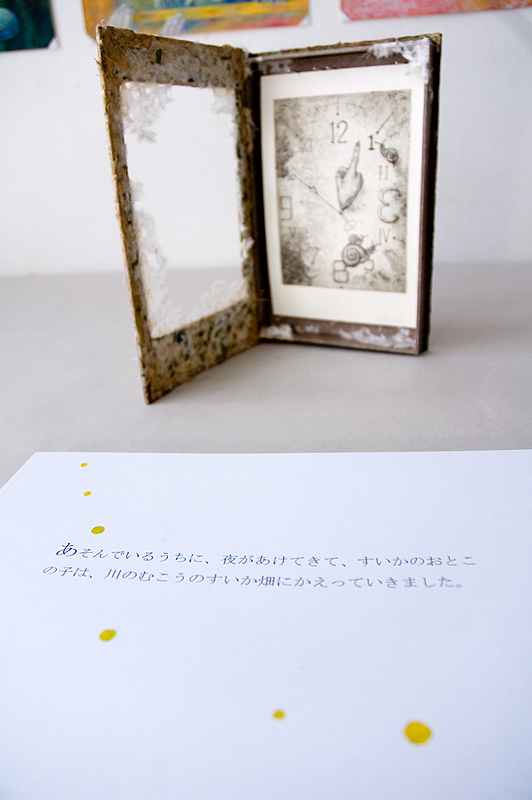 12
1
II
3
IV
8
あそんでいるうちに、夜があけてきて、すいかのおとこ
の子は、川のむこうのすいか畑にかえっていきました。